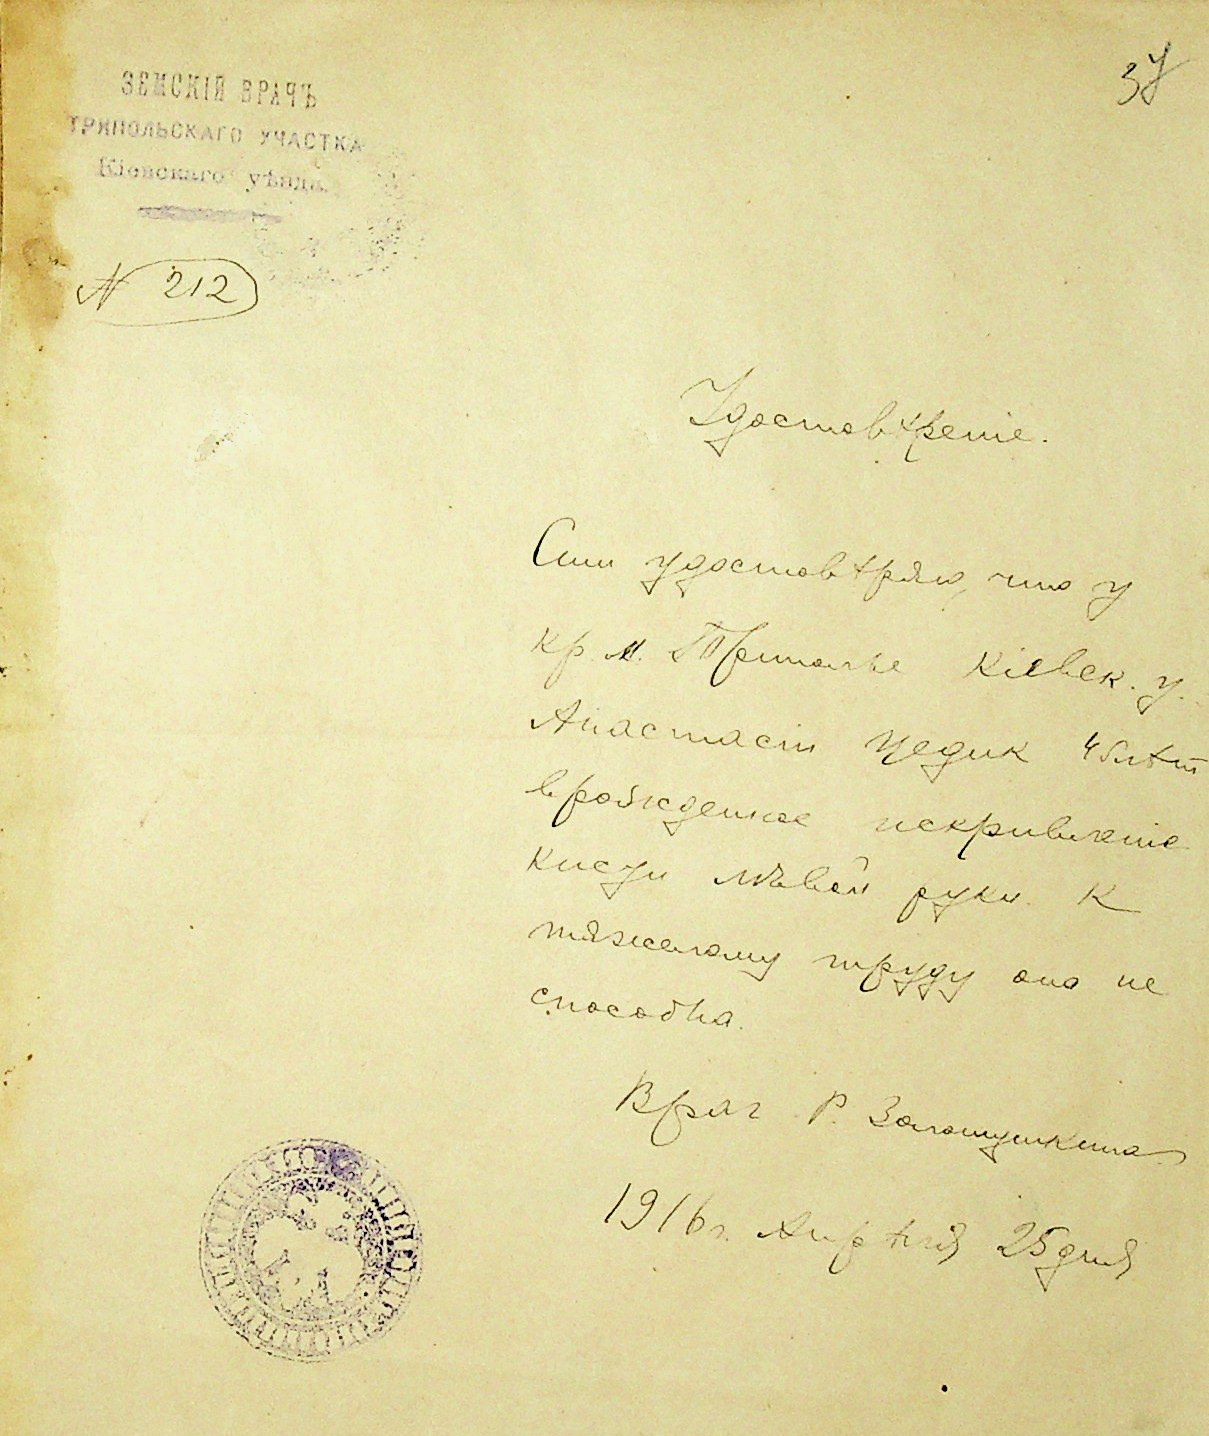 37
ЗЕМСКІЙ ВРАЧЪ
ТРИПОЛЬСКАГО УЧАСТКА
Кіевскаго уѣзда.
N 212
Удостовѣреніе.
Сим удостовѣряю, что у
кр. м. Триполье Кіевск. у.
Анастасіи Цедик лѣт
врожденное искривленіе
кисти лѣвой руки. К
тяжелому труду она не
способна.
Врач Р.
1916 г. Апрѣля 25 дня